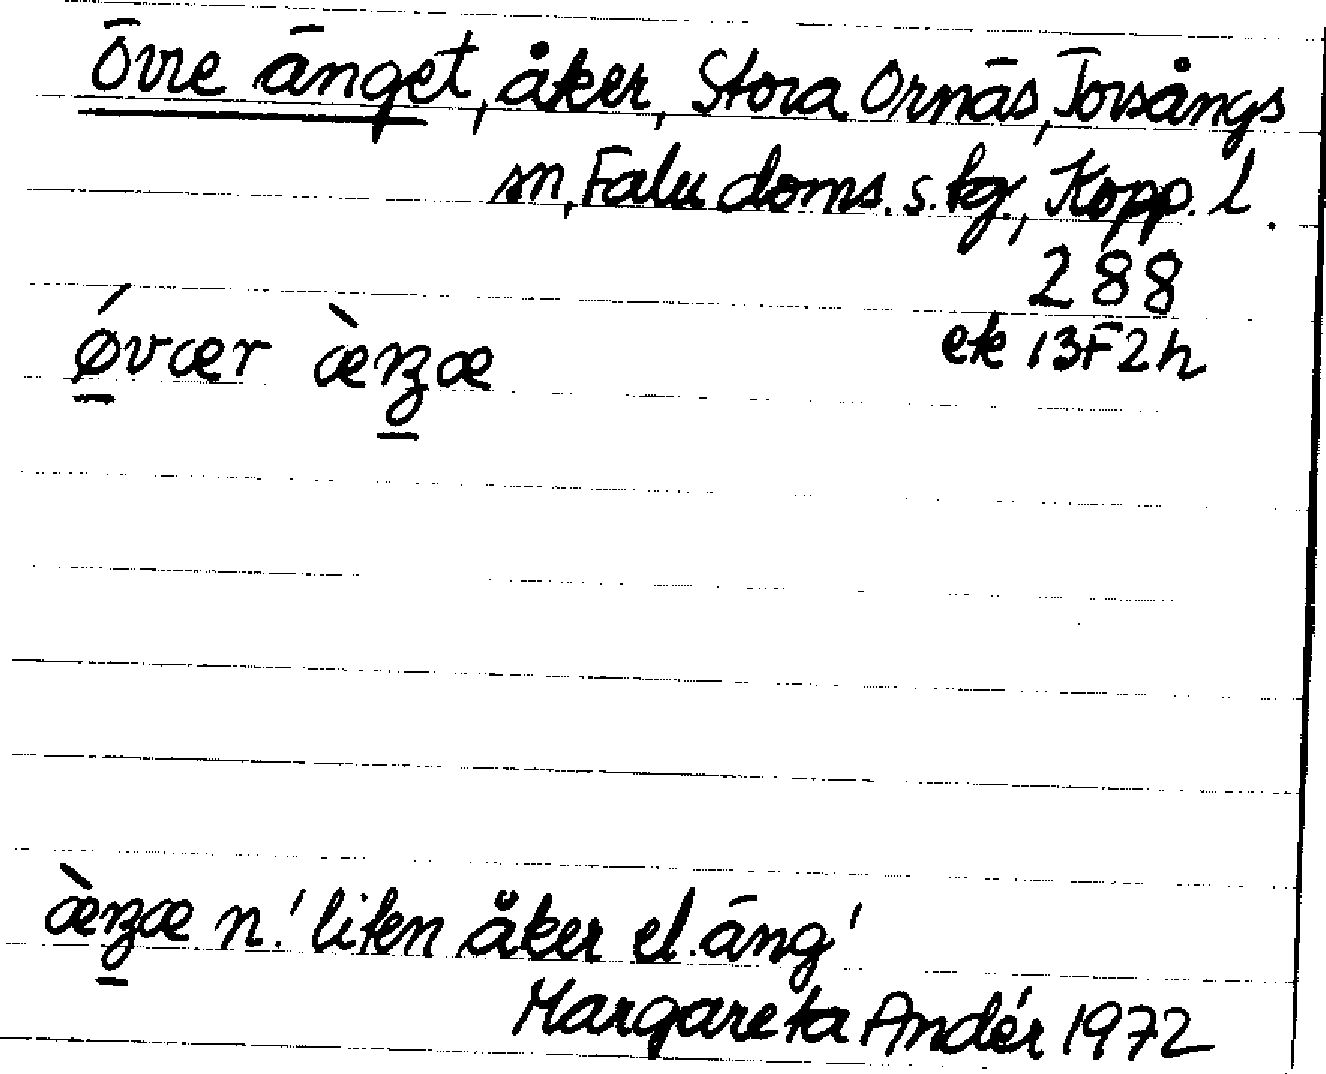 Övre änget, åker, Stora Ornäs, Torsångs
sn, Falu doms. s. tg., Kopp. l.
288
ek 13F2h
ǿvær æ̀nʒæ
æ̀nʒæ n. 'liten åker el. äng'
Margareta Andér 1972